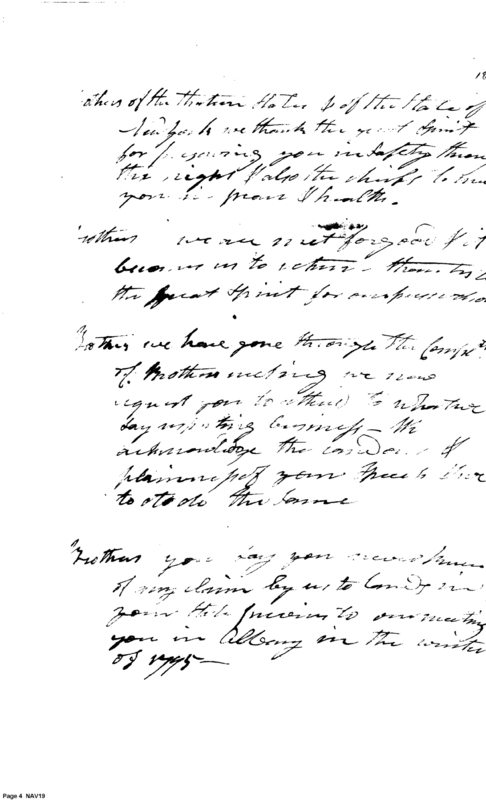 18
others of the thirteen States & of the State of
New York we thank the great Spirit
for preserving you in safety through
the night & also the chiefs to
you in peace & health.
Brothers we are met for good & it
becomes us to return thanks to
the great Spirit for our preservation
Brothers we have gone through the Compl
of Brothers meeting we now
request you to attend to what we
say respecting business — We
acknowledge the candour &
plainness of your Speech
to do the Same
Brothers you say you never knew
of any claim by us to lands in
your State previous to our meeting
you in Albany in the winter
of 1795 —
Page 4 NAV19